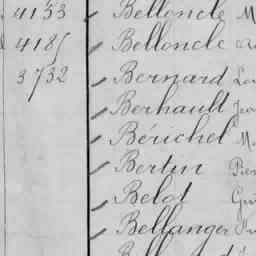 4133 Belloncle M
4185 Belloncle
3732 Bernard Lou
Berhault Jean
Bérichel M
Bertin Pier
Belot Gui
Bellanger